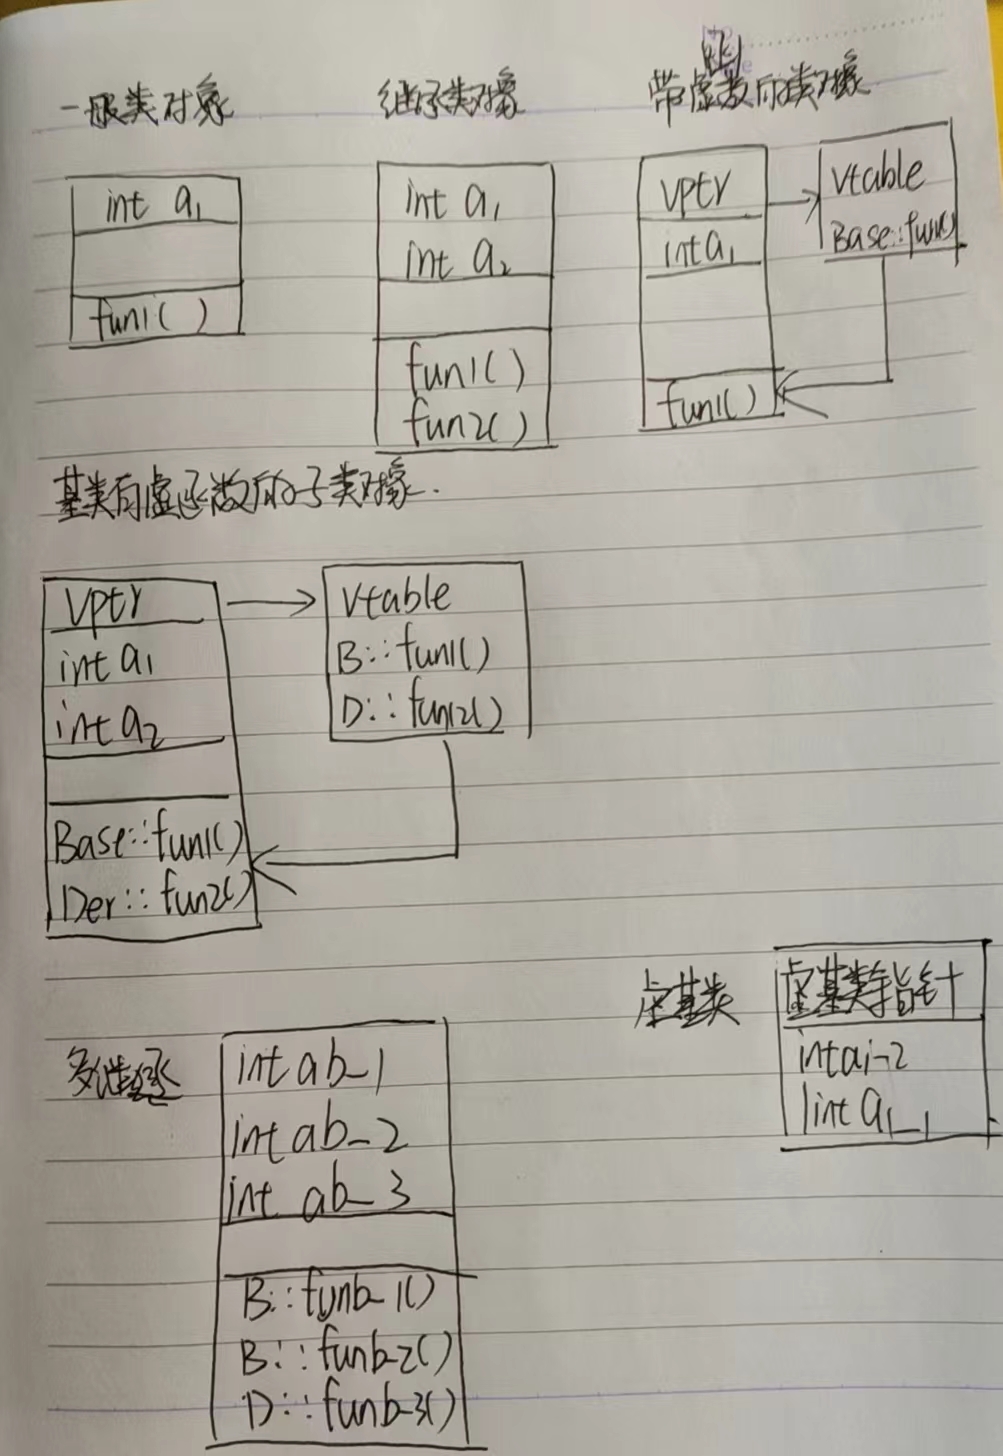 一般类对象
int a1
fun1( )
继承类对象
int a1
int a2
fun1( )
fun2( )
带虚函数的类对象
vptr
int a1
fun1( )
Vtable
Base::fun1()
基类有虚函数的子类对象.
Vptr
int a1
int a2
Base::fun1()
Der::fun2()
Vtable
B::fun1()
D::fun2()
多继承
int ab_1
int ab_2
int ab_3
B::funb_1()
B::funb_2()
D::funb_3()
虚基类
虚基类指针